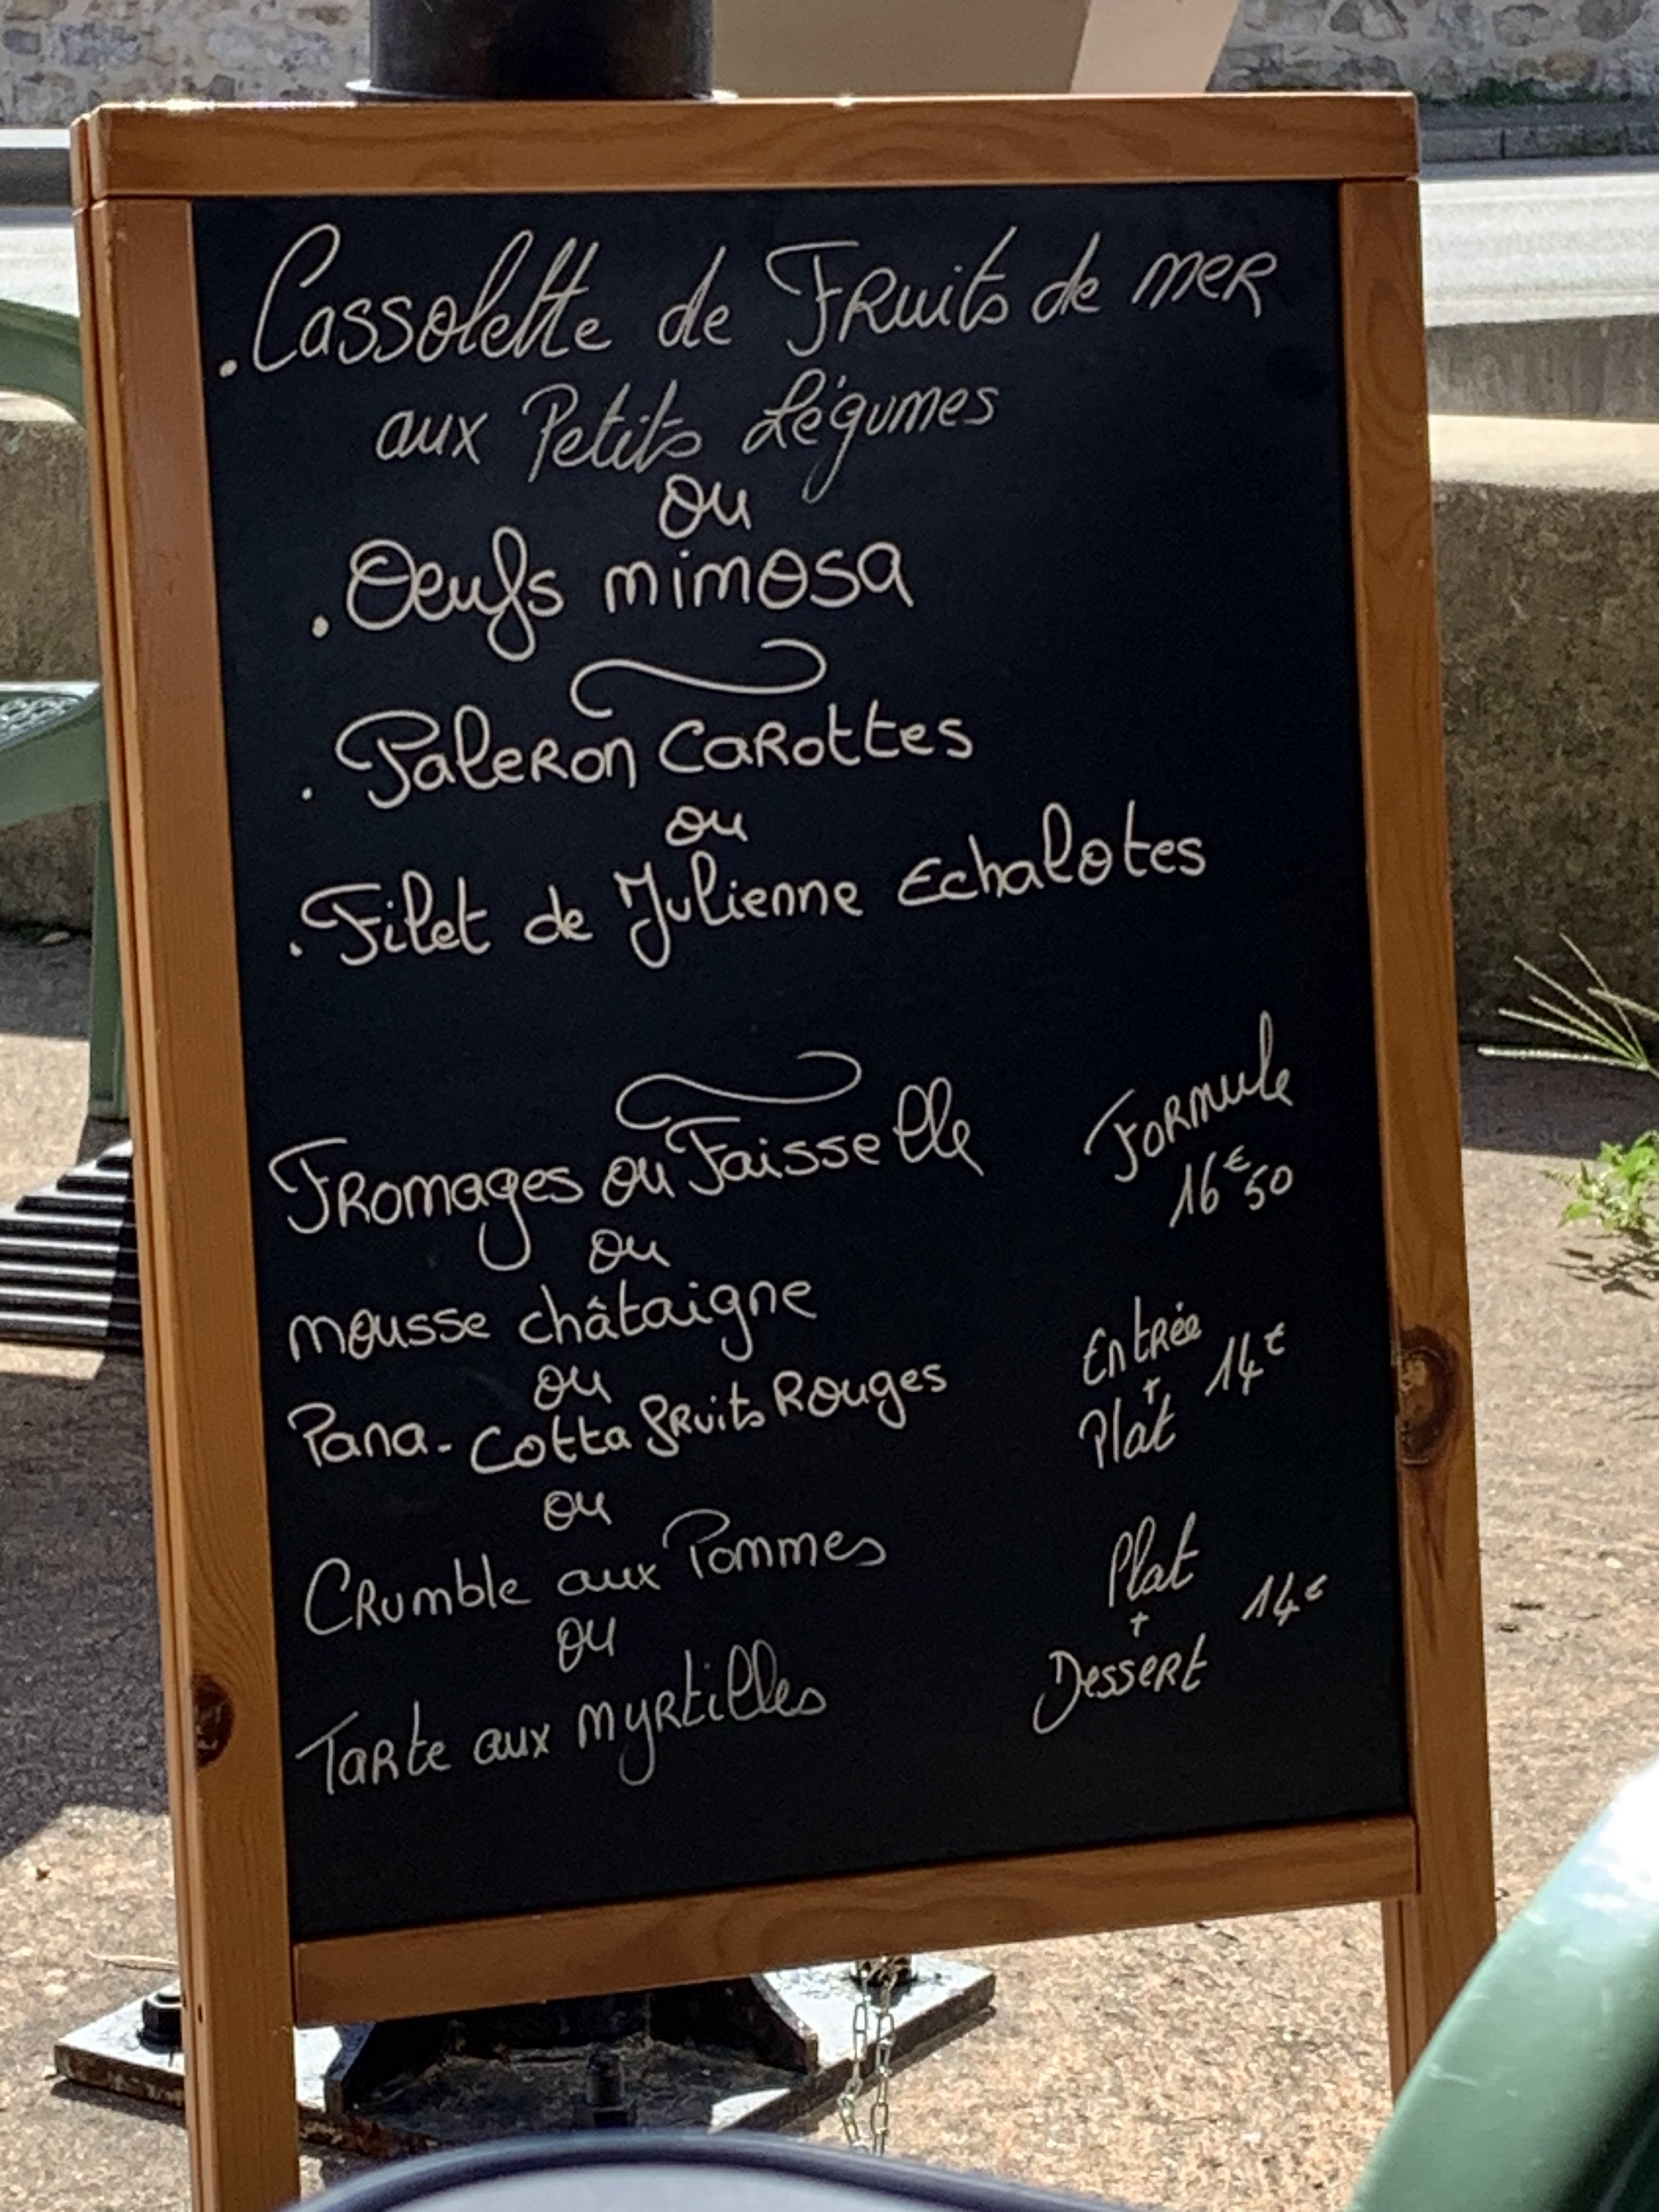 . Cassolette de Fruits de mer
aux Petits Légumes
ou
. Oeufs mimosa
. Paleron Carottes
ou
. Filet de Julienne Echalotes
Fromages ou Faisselle
ou
mousse châtaigne
ou
Pana-Cotta fruits Rouges
ou
Crumble aux Pommes
ou
Tarte aux myrtilles
Formule
16€50
Entrée
+ 14€
Plat
Plat
+ 14€
Dessert